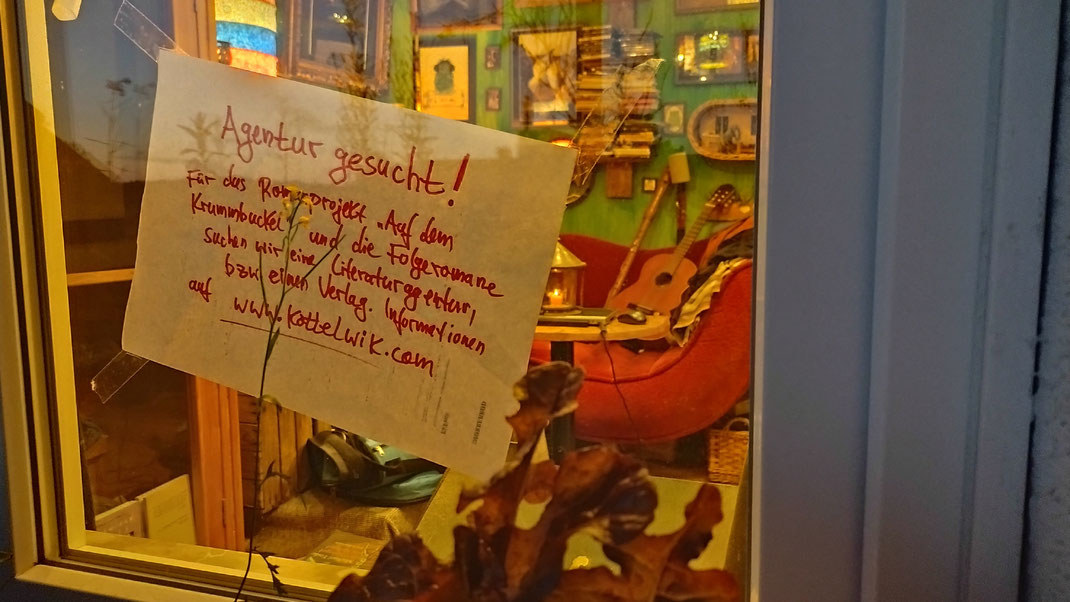 Agentur gesucht!
Für das Romanprojekt „Auf dem
Krummbuckel" und die Folgeromane
suchen wir eine Literaturagentur,
bzw einen Verlag. Informationen
auf www.kottelwik.com